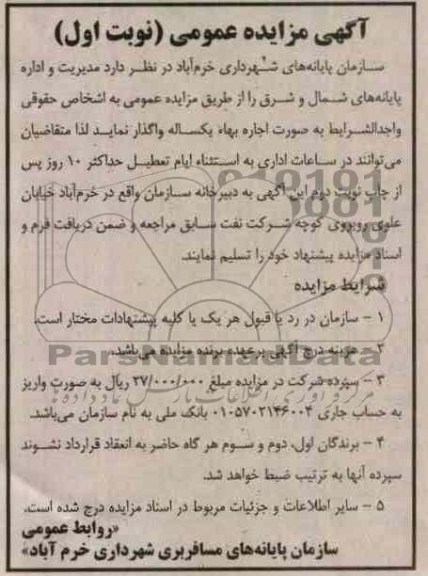 آگهی مزایده عمومی (نوبت اول)
سازمان پایانه‌های شهرداری خرم‌آباد در نظر دارد مدیریت و اداره
پایانه‌های شمال و شرق را از طریق مزایده عمومی به اشخاص حقوقی
واجدالشرایط به صورت اجاره بهاء یکساله واگذار نماید لذا متقاضیان
می‌توانند در ساعات اداری به استثناء ایام تعطیل حداکثر ۱۰ روز پس
از چاپ نوبت دوم این آگهی به دبیرخانه سازمان واقع در خرم‌آباد خیابان
علوی روبروی کوچه شرکت نفت سابق مراجعه و ضمن دریافت فرم و
اسناد مزایده پیشنهاد خود را تسلیم نمایند.
شرایط مزایده
۱ - سازمان در رد یا قبول هر یک یا کلیه پیشنهادات مختار است.
۲ - هزینه درج آگهی برعهده برنده مزایده می‌باشد.
ParsNamadData
۳ - سپرده شرکت در مزایده مبلغ ۲۷/۰۰۰/۰۰۰ ریال به صورت واریز
به حساب جاری ۰۱۰۵۷۰۲۱۴۶۰۰۴ بانک ملی به نام سازمان می‌باشد.
۴ - برندگان اول، دوم و سوم هر گاه حاضر به انعقاد قرارداد نشوند
سپرده آنها به ترتیب ضبط خواهد شد.
۵ - سایر اطلاعات و جزئیات مربوط در اسناد مزایده درج شده است.
«روابط عمومی
سازمان پایانه‌های مسافربری شهرداری خرم آباد»